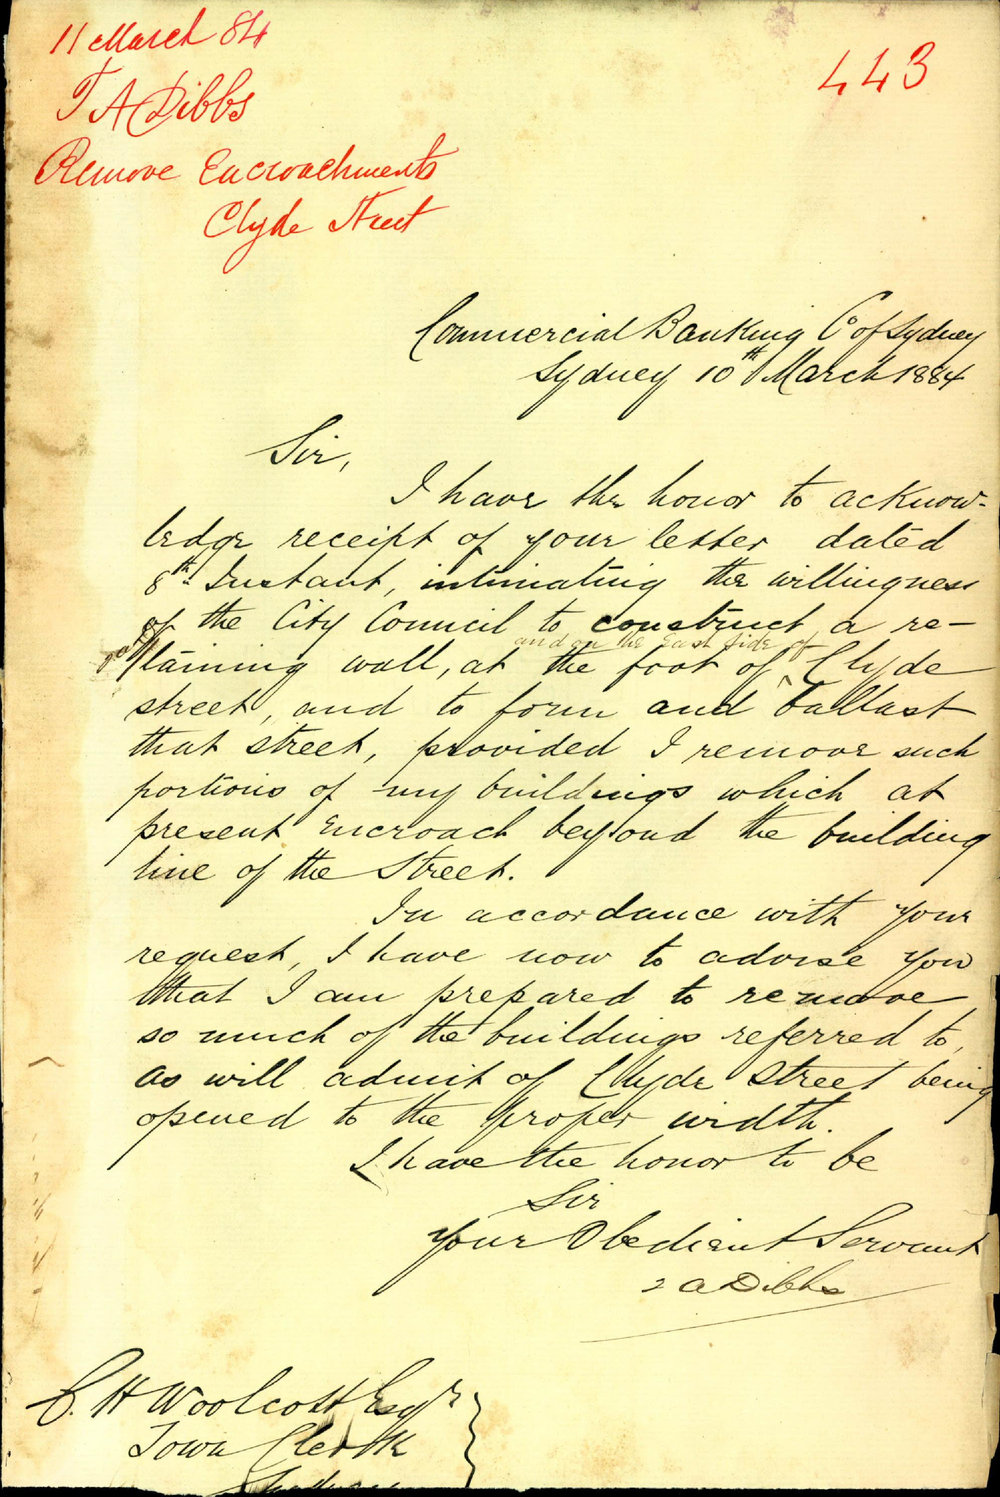 11 March 84
T A Dibbs
Remove Encroachments
Clyde Street
443
Commercial Banking Co of Sydney
Sydney 10th March 1884
Sir,
I have the honor to acknow-
ledge receipt of your letter dated
8th Instant, intimating the willingness
of the City Council to construct a re-
taining wall, at the foot of and on the East side of Clyde
street, and to form and ballast
that street, provided I remove such
portions of my buildings which at
present encroach beyond the building
line of the Street.
In accordance with your
request, I have now to advise you
that I am prepared to remove
so much of the buildings referred to,
as will admit of Clyde Street being
opened to the proper width.
I have the honor to be
Sir
Your Obedient Servant
T A Dibbs
C. H Woolcott Esqr
Town Clerk
Sydney